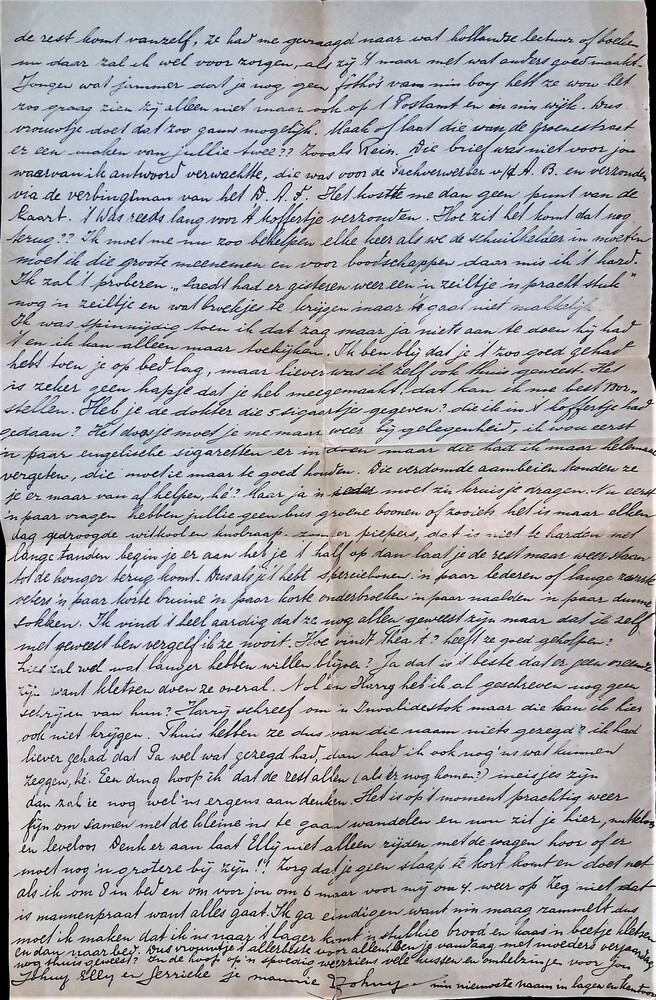 de rest komt vanzelf, ze had me gevraagd naar wat hollandse lectuur of boeken
nu daar zal ik wel voor zorgen, als zij 't maar met wat anders goed maakt.
Jongen wat jammer dat je nog geen foto's van m'n boy hebt ze wou het
zoo graag zien zij alleen niet maar ook op 't Postamt en in m'n wijk. Dus
vrouwtje doet dat zoo gauw mogelijk. Maak of laat die van de Groenestraat
er een maken van jullie twee?? Zooals Rein. Die brief was niet voor jou
waarvan ik antwoord verwachtte, die was voor de Fachverwerber v/d A. B. en verzonden
via de verbingsman van het D. A. F. Het kostte me dan geen punt van de
kaart. 't Was reeds lang voor A. koffertje verzonden. Hoe zit het komt dat nog
terug?? Ik moet me nu zoo behelpen elke keer als we de schuilkelder in moeten
moet ik die groote meenemen en voor boodschappen daar mis ik 't hard
Ik zal 't proberen. "Gaedt had er gisteren weer een 'n zeiltje 'n pracht stuk"
nog 'n zeiltje en wat broekjes te krijgen maar 't gaat niet makkelijk.
Ik was spinnijdig toen ik dat zag maar ja niets aan te doen hij had
't en ik kan alleen maar toekijken. Ik ben blij dat je 't zoo goed gehad
hebt toen je op bed lag, maar liever was ik zelf ook thuis geweest. Het
is zeker geen hapje dat je heb meegemaakt! dat kan ik me best voor-
stellen. Heb je de dokter die 5 sigaartjes gegeven? die ik in 't koffertje had
gedaan? Het doosje moet je me maar weer bij gelegenheid, ik wou eerst
'n paar engelsche sigaretten er in doen maar die had ik maar helemaal
vergeten, die moet ie maar te goed houden. Die verdomde aambeien konden ze
je er maar van af helpen, hé? Maar ja 'n ieder moet z'n kruisje dragen. Nu eerst
'n paar vragen hebben jullie geen bus groene boonen of zooiets het is maar elken
dag gedroogde wittkool en knolraap zonder piepers, dat is niet te harden met
lange tanden begin je er aan heb je 't half op dan laat je de rest maar weer staan
tot de honger terug komt. Dus als je 't hebt sperciebonen 'n paar lederen of lange zwarte
veters 'n paar korte bruine 'n paar korte onderbroeken 'n paar naalden 'n paar dunne
sokken. Ik vind 't heel aardig dat ze nog allen geweest zijn maar dat ik er zelf
niet geweest ben vergeef ik ze nooit. Hoe vindt Thea 't? heeft ze goed geholpen?
zal wel wat langer hebben willen blijven? Ja dat is 't beste dat er geen
zijn want kletsen doen ze overal. Nol en Harry heb ik al geschreven nog geen
schrijven van hun? Harry schreef om 'n Invalidestok maar die kan ik hier
ook niet krijgen. Thuis hebben ze dus van die naam niets gezegd? ik had
liever gehad dat Pa wel wat gezegd had, dan had ik ook nog 'ns wat kunnen
zeggen, hé. Een ding hoop ik dat de rest allen (als 'r nog komen?) meisjes zijn
dan zal je nog wel 'ns ergens aan denken. Het is op 't moment prachtig weer
fijn om samen met de kleine 'ns te gaan wandelen en nou zit je hier, nutteloos
en leveloos. Denk er aan laat Elly niet alleen rijden met de wagen hoor of er
moet nog 'n grotere bij zijn!! Zorg dat je geen slaap te kort komt en doet net
als ik om 8 in bed en om voor jou om 6 maar voor mij om 4. weer op Zeg niet dat
is mannenpraat want alles gaat. Ik ga eindigen want m'n maag rammelt dus
moet ik maken dat ik ins naar 't lager komt 'n stukkie brood en kaas 'n beetje kletsen
en dan naar bed. Dus vrouwtje 't allerbeste voor allen. Ben je vandaag met moeders verjaardag
nog thuis geweest? En de hoop op 'n spoedig weerziens vele kussen en omhelzingen voor jou
Johny Elly en Gerrieke je mannie Johny – m'n nieuwste naam in lager en kantoor